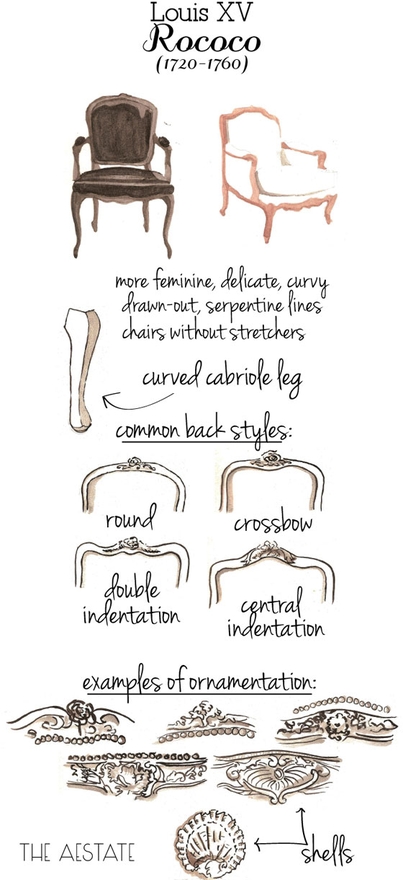 Louis XV
Rococo
(1720-1760)
more feminine, delicate, curvy
drawn-out, serpentine lines
chairs without stretchers
curved cabriole leg
common back styles:
round
crossbow
double
indentation
central
indentation
examples of ornamentation:
shells
THE AESTATE